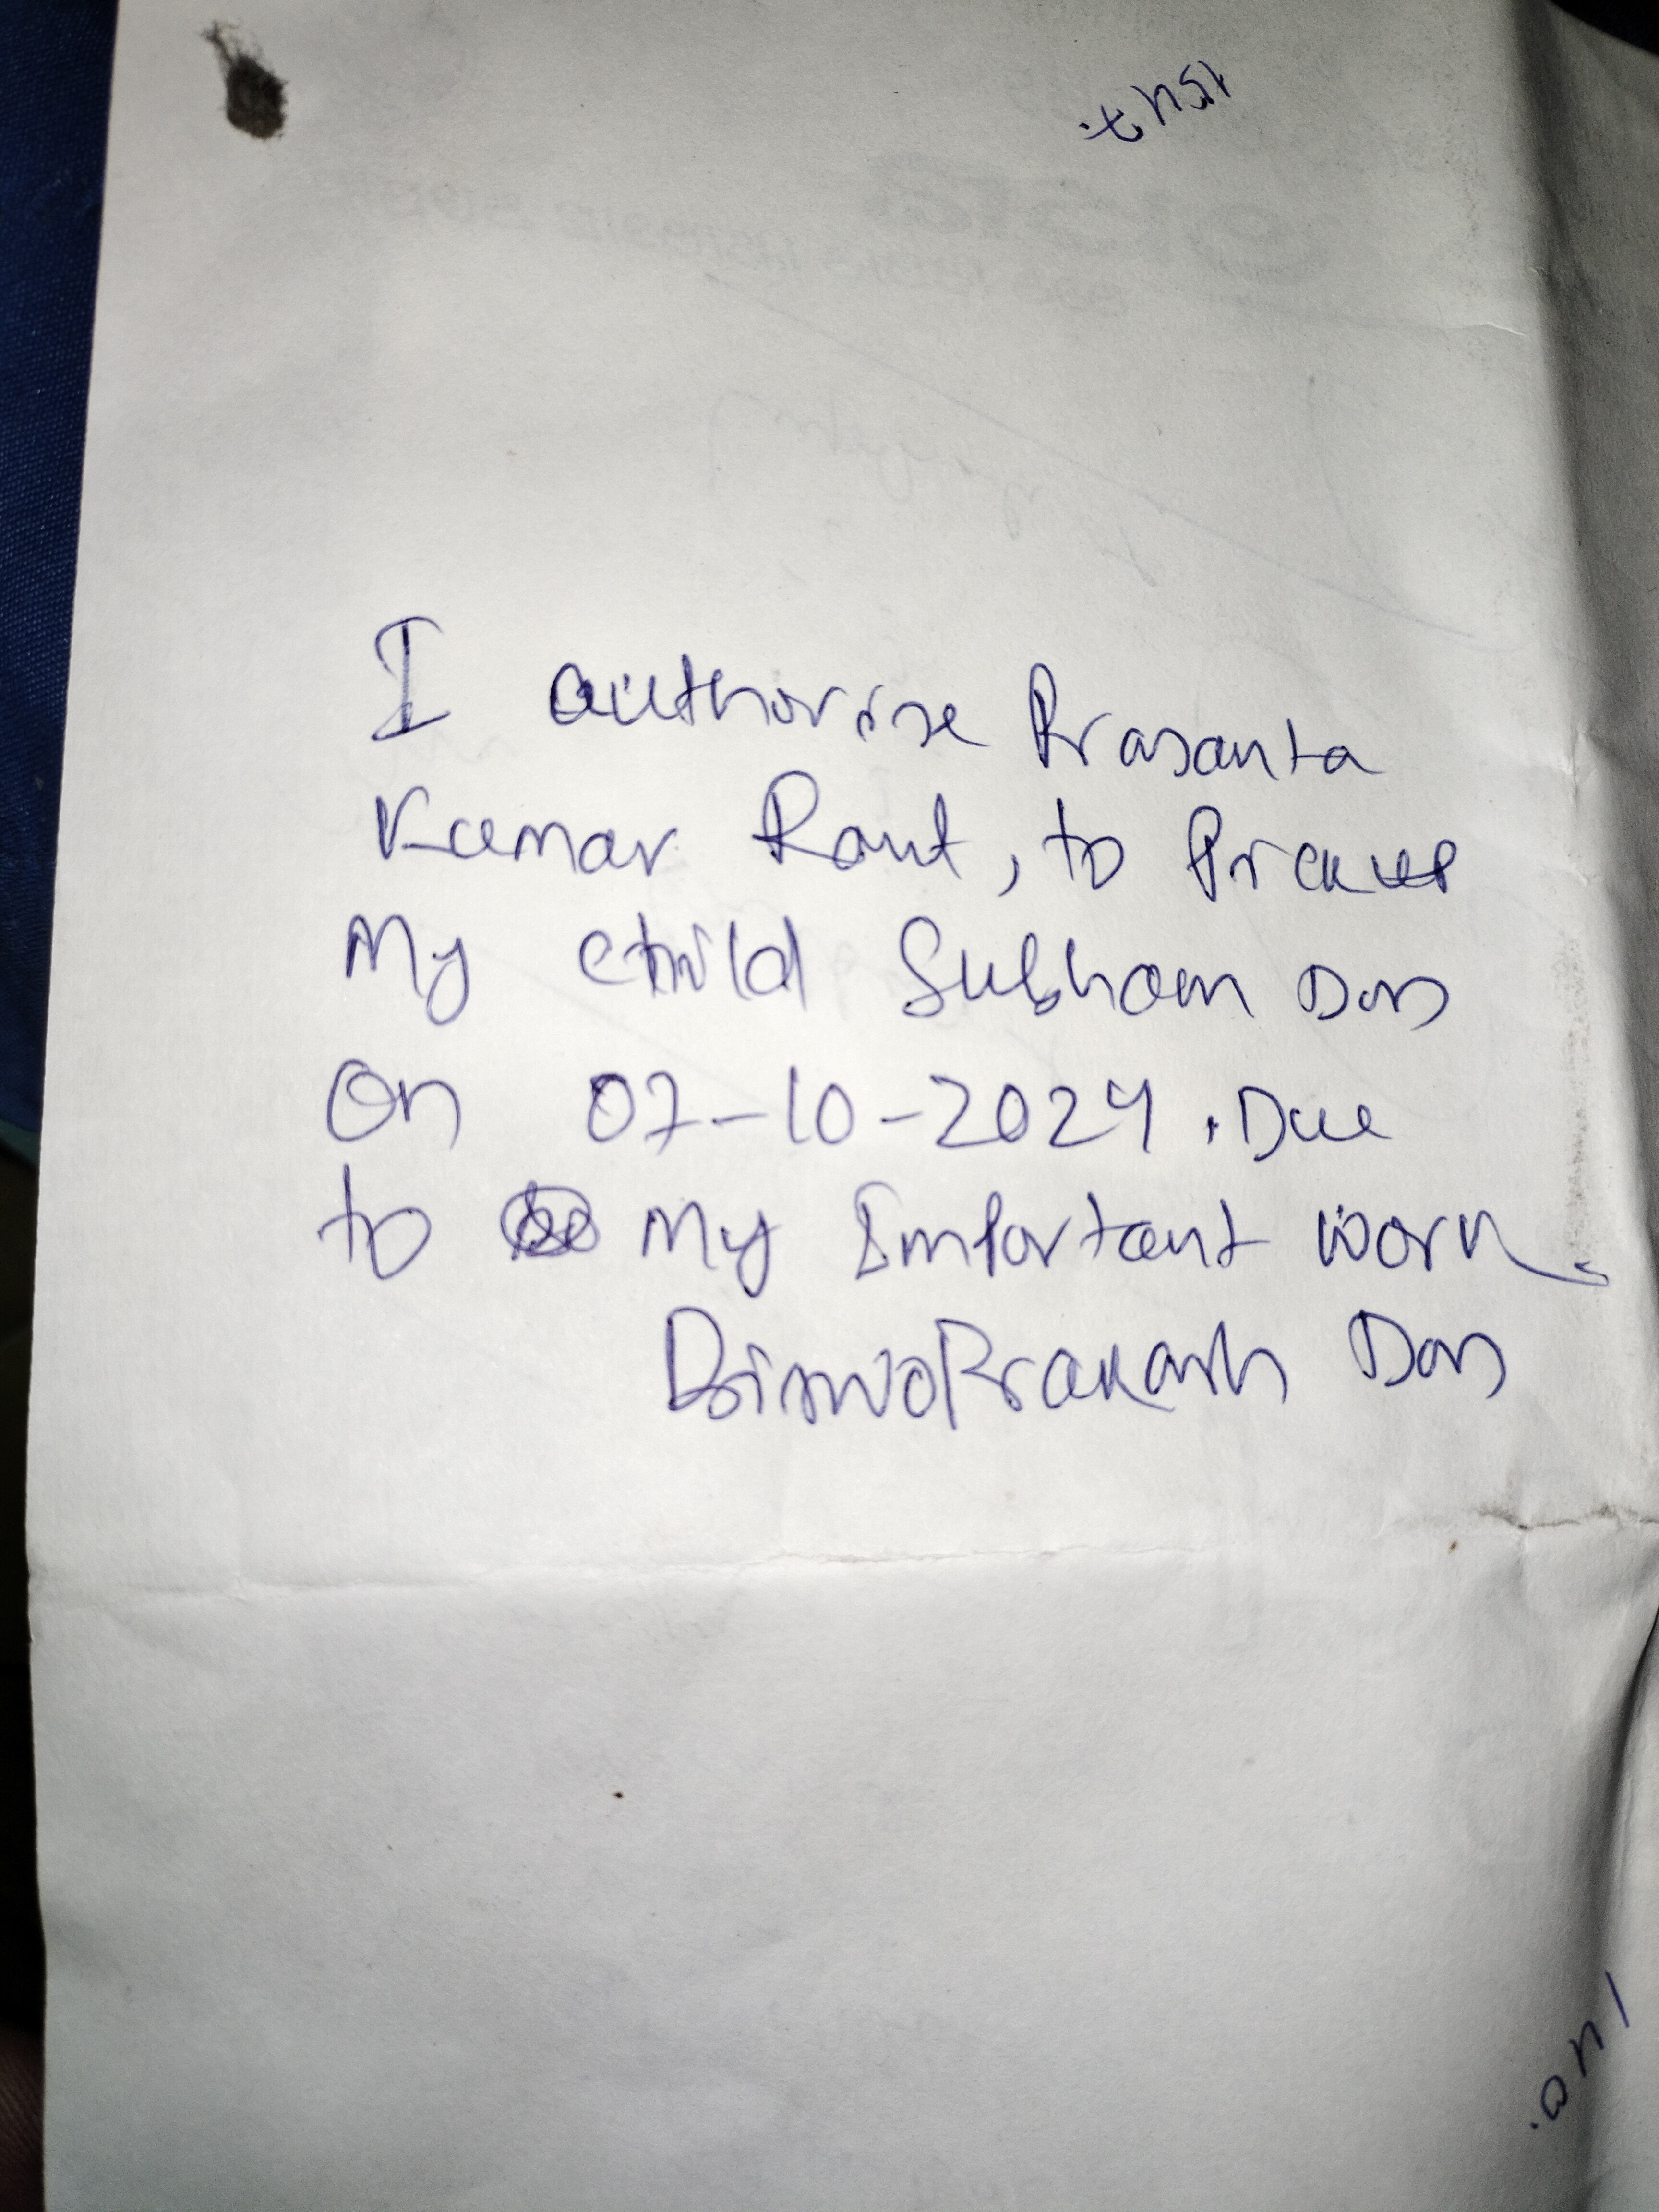 I authorise Prasanta
Kumar Raut, to Pickup
My child Subham Das
On 07-10-2024. Due
to My Important work.
BiswoPrakash Das